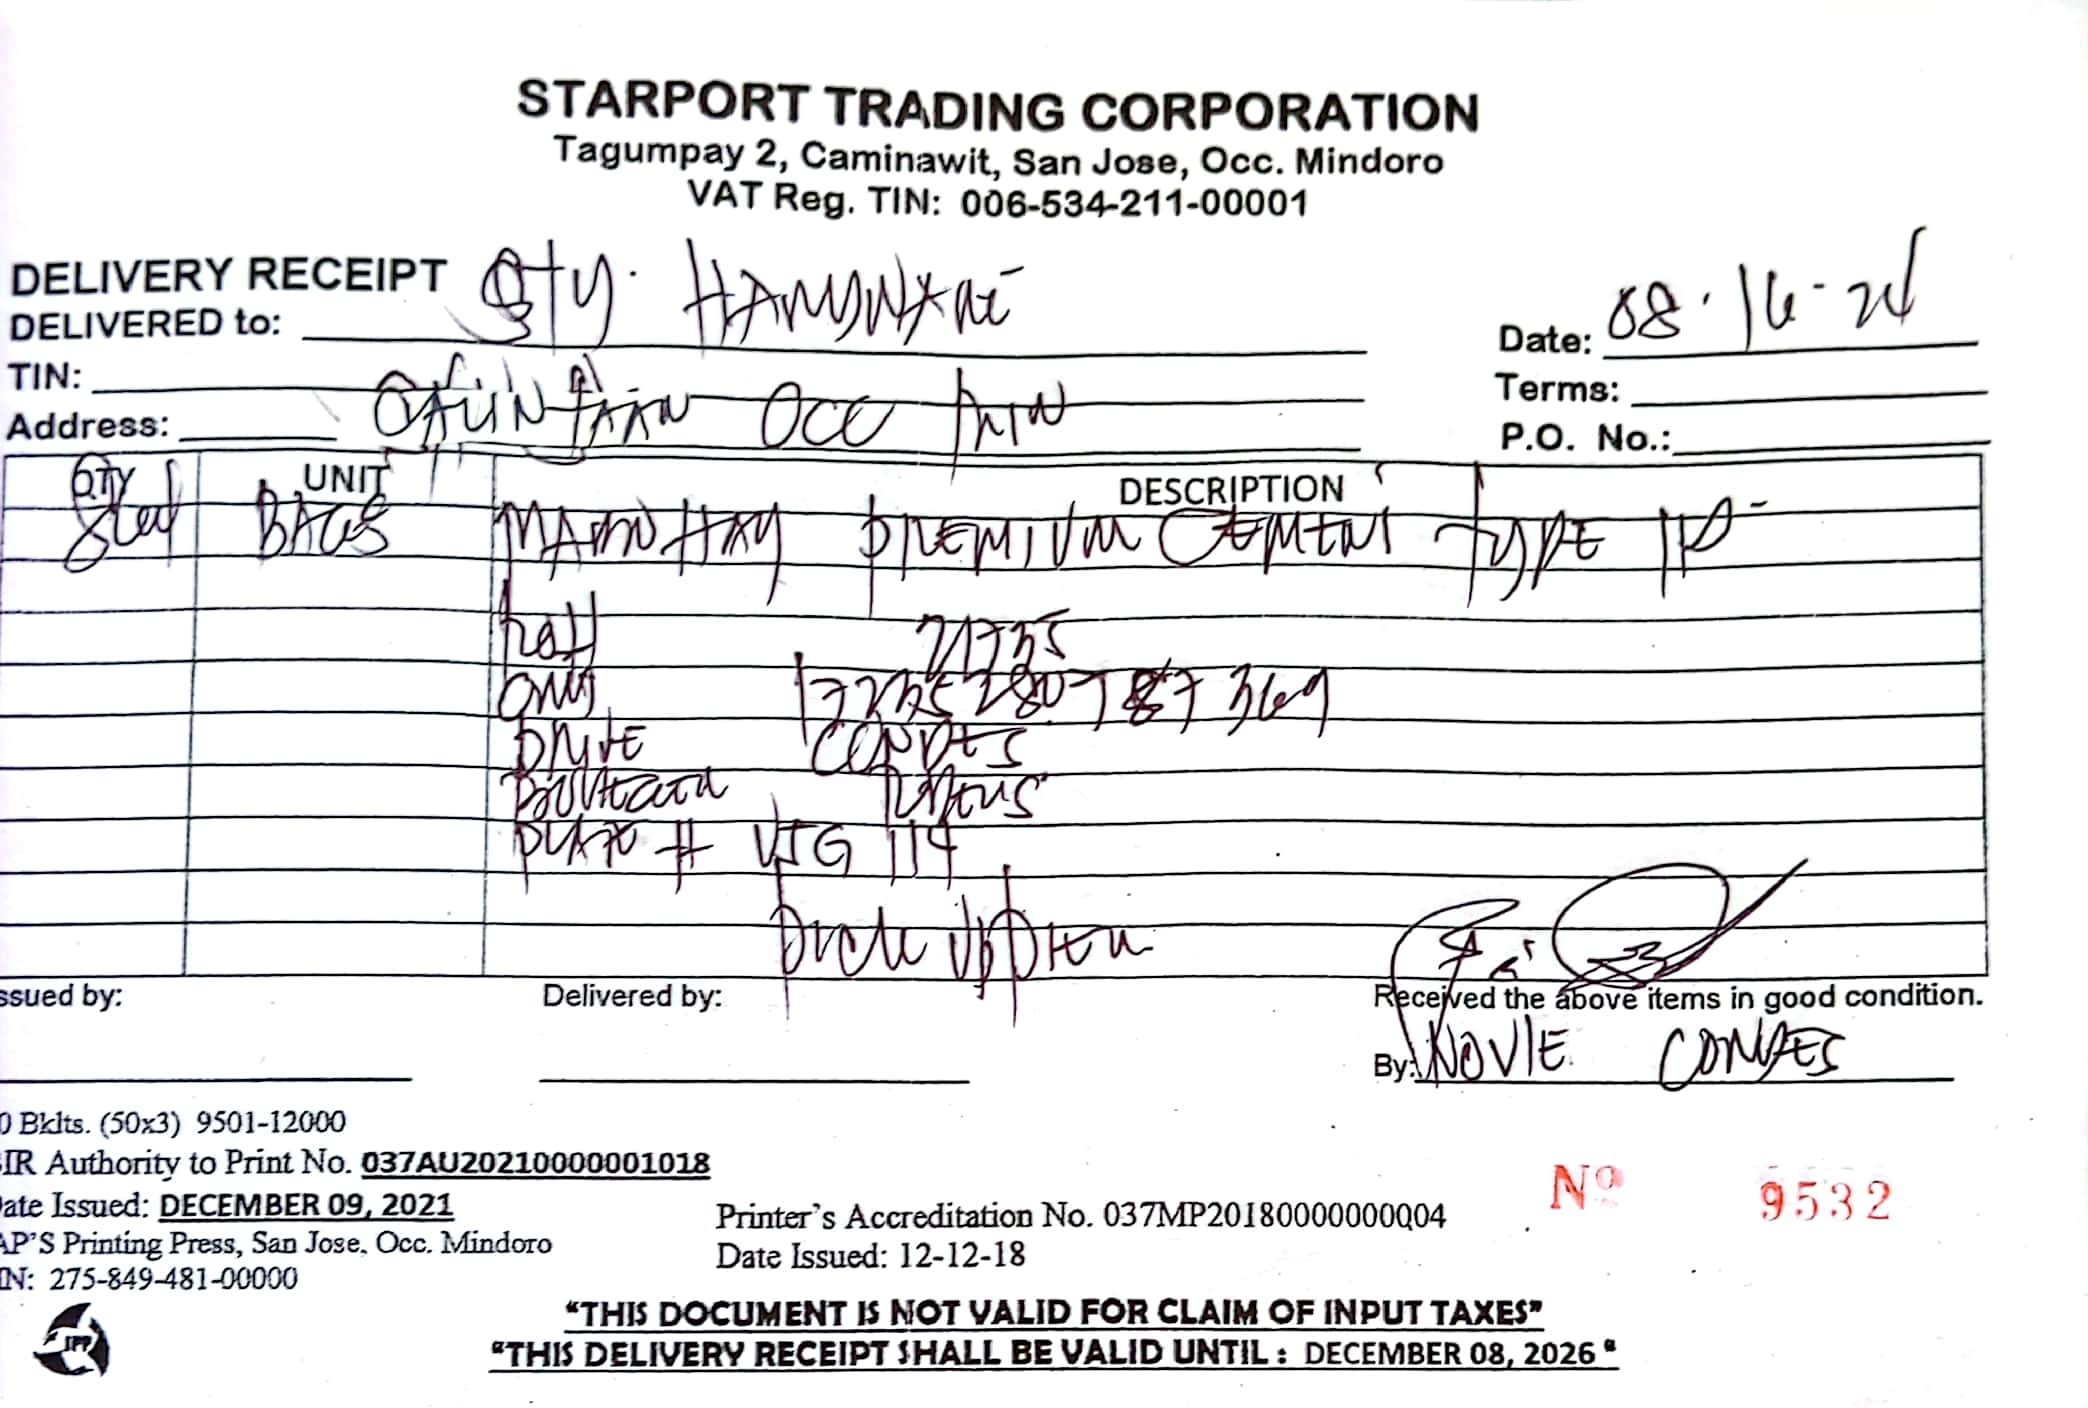 STARPORT TRADING CORPORATION
Tagumpay 2, Caminawit, San Jose, Occ. Mindoro
VAT Reg. TIN: 006-534-211-00001
DELIVERY RECEIPT
DELIVERED to: QTY. HARDWARE
Date: 08-16-24
TIN:
Terms:
Address: OCC MIN
P.O. No.:
QTY UNIT DESCRIPTION
BAGS PREMIUM CEMENT TYPE 1P
21735
CONDES
PLATE # 114
Pick up
ssued by: Delivered by: Received the above items in good condition.
By: NOVIE CONDES
0 Bklts. (50x3) 9501-12000
IR Authority to Print No. 037AU20210000001018
ate Issued: DECEMBER 09, 2021
Printer's Accreditation No. 037MP20180000000004
AP'S Printing Press, San Jose, Occ. Mindoro
Date Issued: 12-12-18
IN: 275-849-481-00000
Nº 9532
JPP
"THIS DOCUMENT IS NOT VALID FOR CLAIM OF INPUT TAXES"
"THIS DELIVERY RECEIPT SHALL BE VALID UNTIL : DECEMBER 08, 2026 "